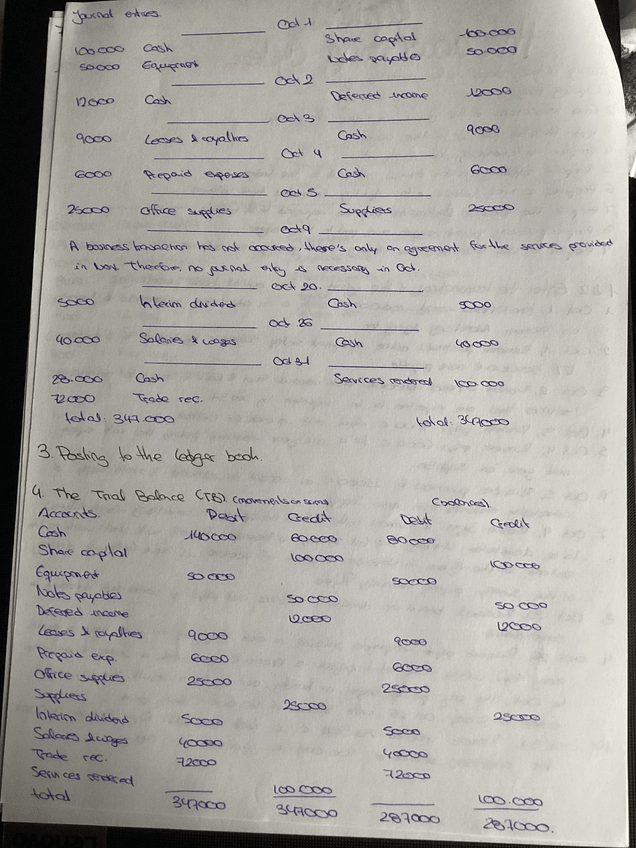 Journal entries.
Oct 1
100.000 Cash Share capital 100.000
50.000 Equipment Notes payables 50.000
Oct 2
12000 Cash Deferred income 12000
Oct 3
9000 Leases & royalties Cash 9000
Oct 4
6000 Prepaid expeses Cash 6000
Oct 5.
25000 Office supplies Suppliers 25000
Oct 9
A business transaction has not occured, there's only an agreement for the services provided
in Nov. Therefore, no journal entry is necessary in Oct.
Oct 20.
5000 Interim dividend Cash 5000
Oct 26
40.000 Salaries & wages Cash 40.000
Oct 31
28.000 Cash Services rendered 100.000
72000 Trade rec.
total: 347.000 total: 347000
3. Posting to the ledger book.
4. The Trial Balance (TB). (balances).
Accounts. Debit Credit Debit Credit
Cash 140000 60000 80000
Share capital 100.000 100000
Equipment 50000 50000
Notes payables 50000 50000
Defered income 12000 12000
Leases & royalties 9000 9000
Prepaid exp. 6000 6000
Office supplies 25000 25000
Suppliers 25000 25000
Interim dividend 5000 5000
Salaries & wages 40000 40000
Trade rec. 72000 72000
Services rendered 100.000 100.000
total 347000 347000 287000 287000.